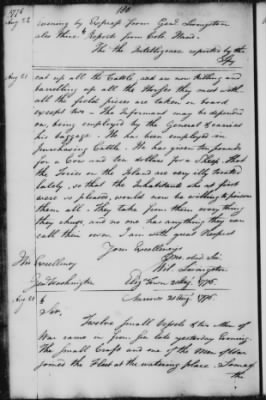 186
1776
Aug 22
evening by Express from Genl Livingston
also three Reports from Colo Hand.
The the Intelligence reported by the
Spy
Aug 21
eat up all the Cattle, and are now killing and
barrelling up all the Horses they meet with
all the field pieces are taken on board
except two - The informant may be depended
on, being employed by the General & carried
his baggage. He has been employed in
purchasing Cattle. He has given ten pounds
for a Cow and ten dollars for a Sheep. that
the Tories on the Island are very illy treated
lately, so that the Inhabitants who at first
were so pleased, would now be willing to poison
them all. They take from them every thing
they chuse, and no one has anything they can
call their own I am with great Respect
Your Excellencys
Obedient
Wil Livingston
His Excellency
Genl Washington
Eliz Town 21 Aug. 1776.
Aug 21
21 Aug. 1776.
Sir,
Twelve Small Vessels & two Men of
War came in from Sea late yesterday Evening.
The Small Craft and one of the Men of War
joined the Fleet at the watering place.
the